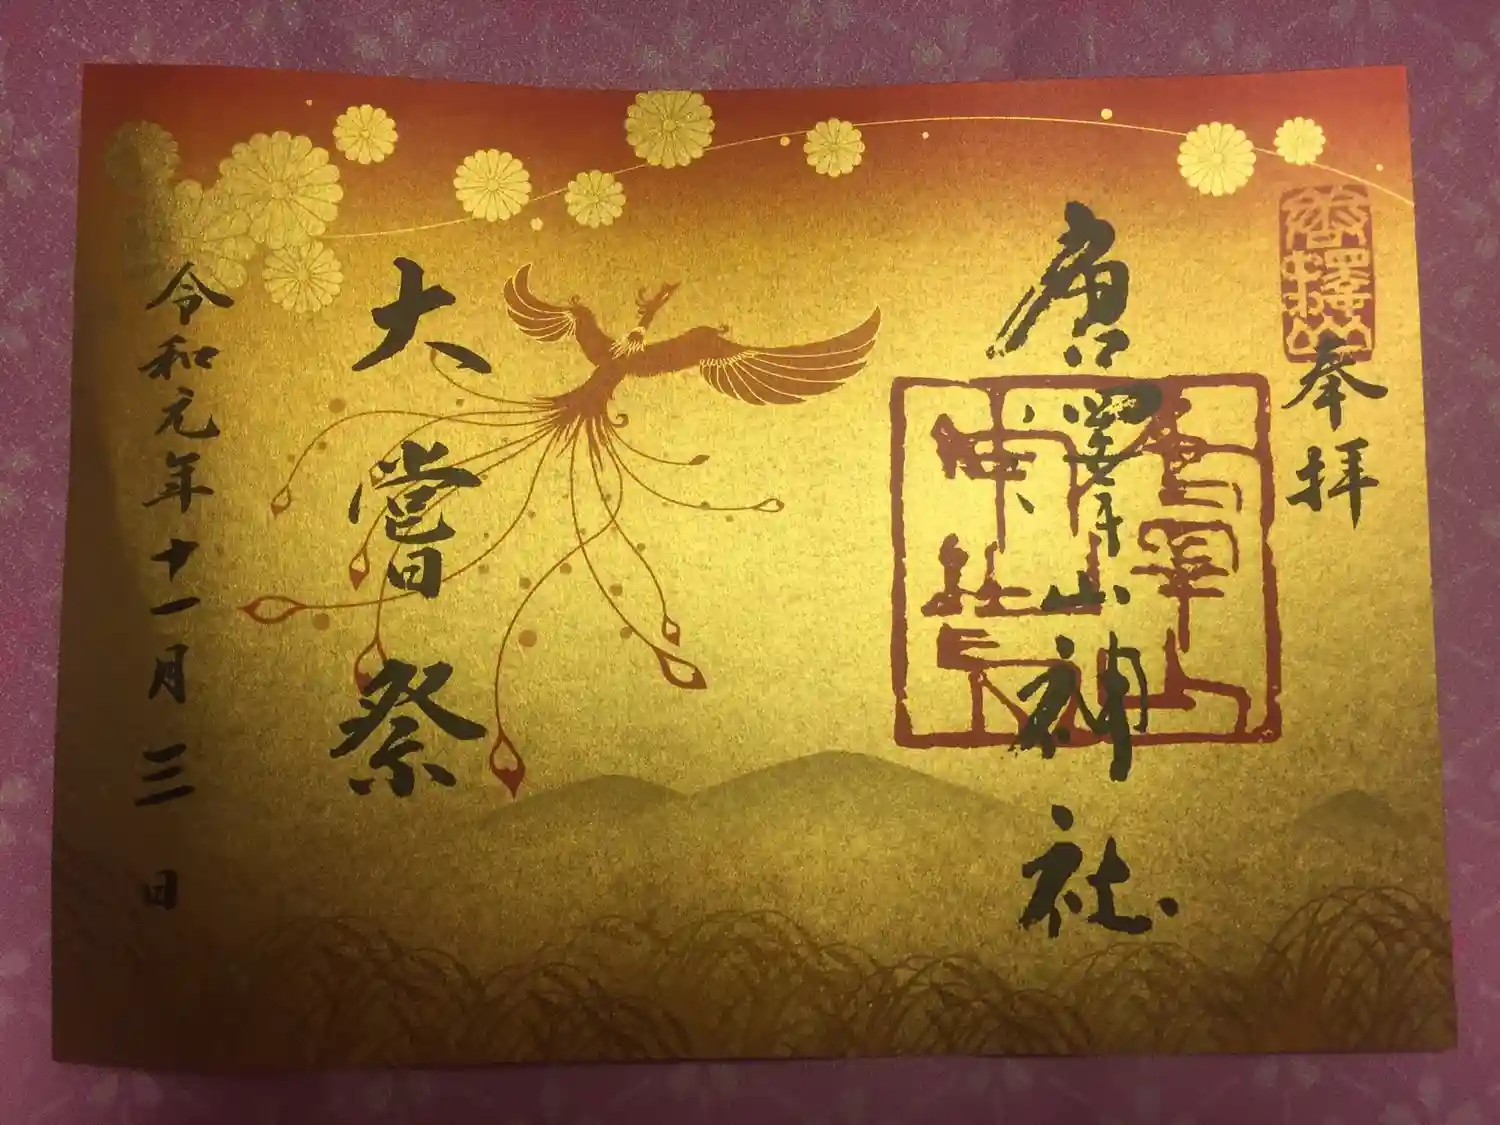 唐澤山
奉拝
唐澤山神社
大嘗祭
令和元年十一月三日